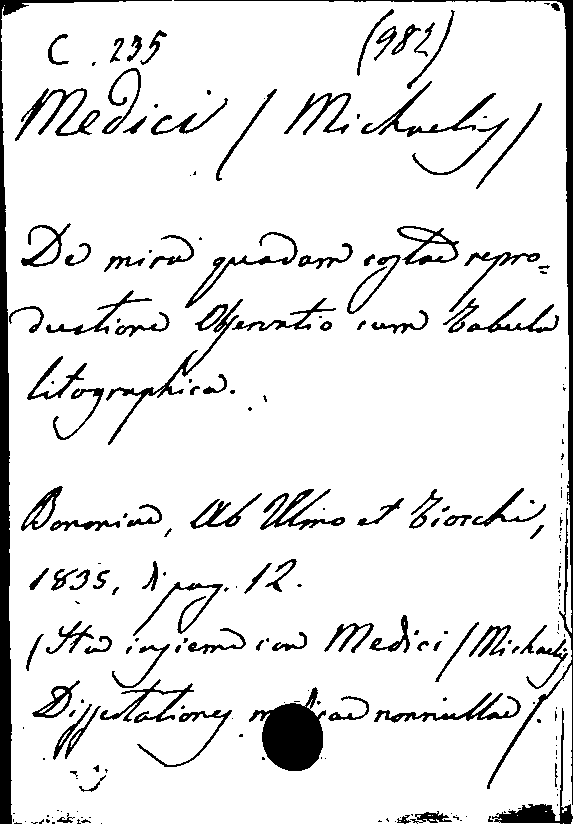 C. 235 (982)
Medici (Michaelis)
De mira quadam costae repro=
ductione Observatio cum Tabula
litographica.
Bononiae, Ab Ulmo et Tiocchi,
1835, di pag. 12.
(Sta insieme con Medici (Michaelis)
Dissertationes medicae nonnullae).